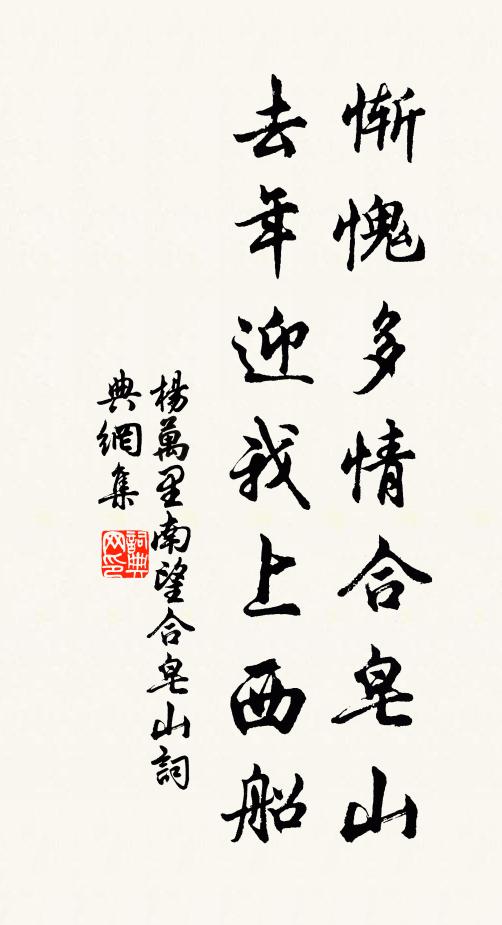 慚愧多情合皂山
去年迎我上西船
楊萬里南望合皂山詞
典網集
詞典
网印